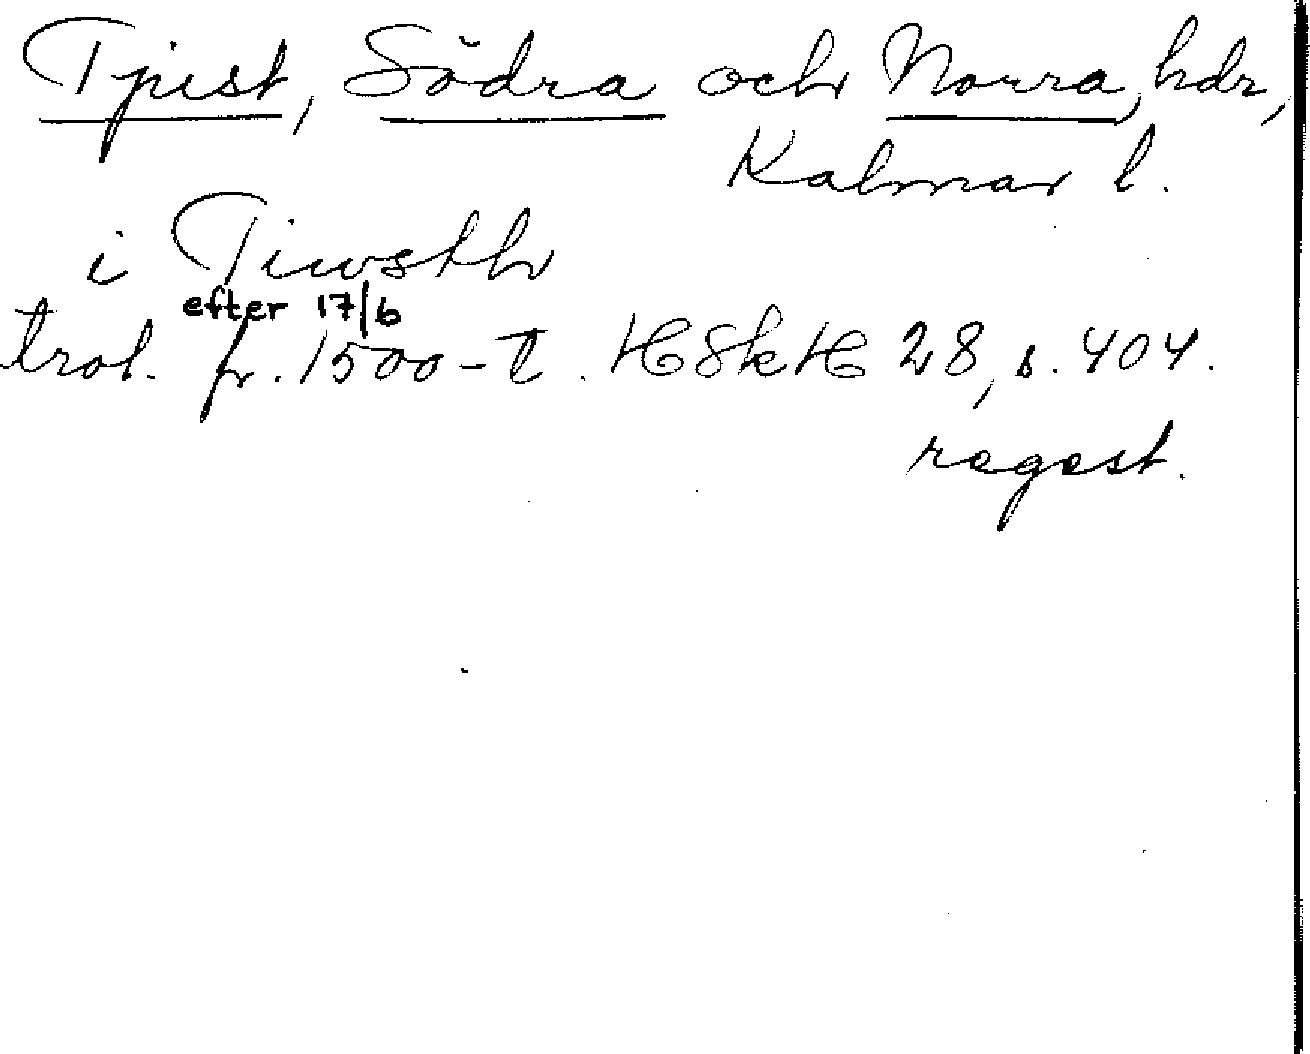 Tjust, Södra och Norra, hdr,
Kalmar l.
i Tiwsth
efter 17/6
trol. fr. 1500-t. HSkH 28, s. 404.
regest.